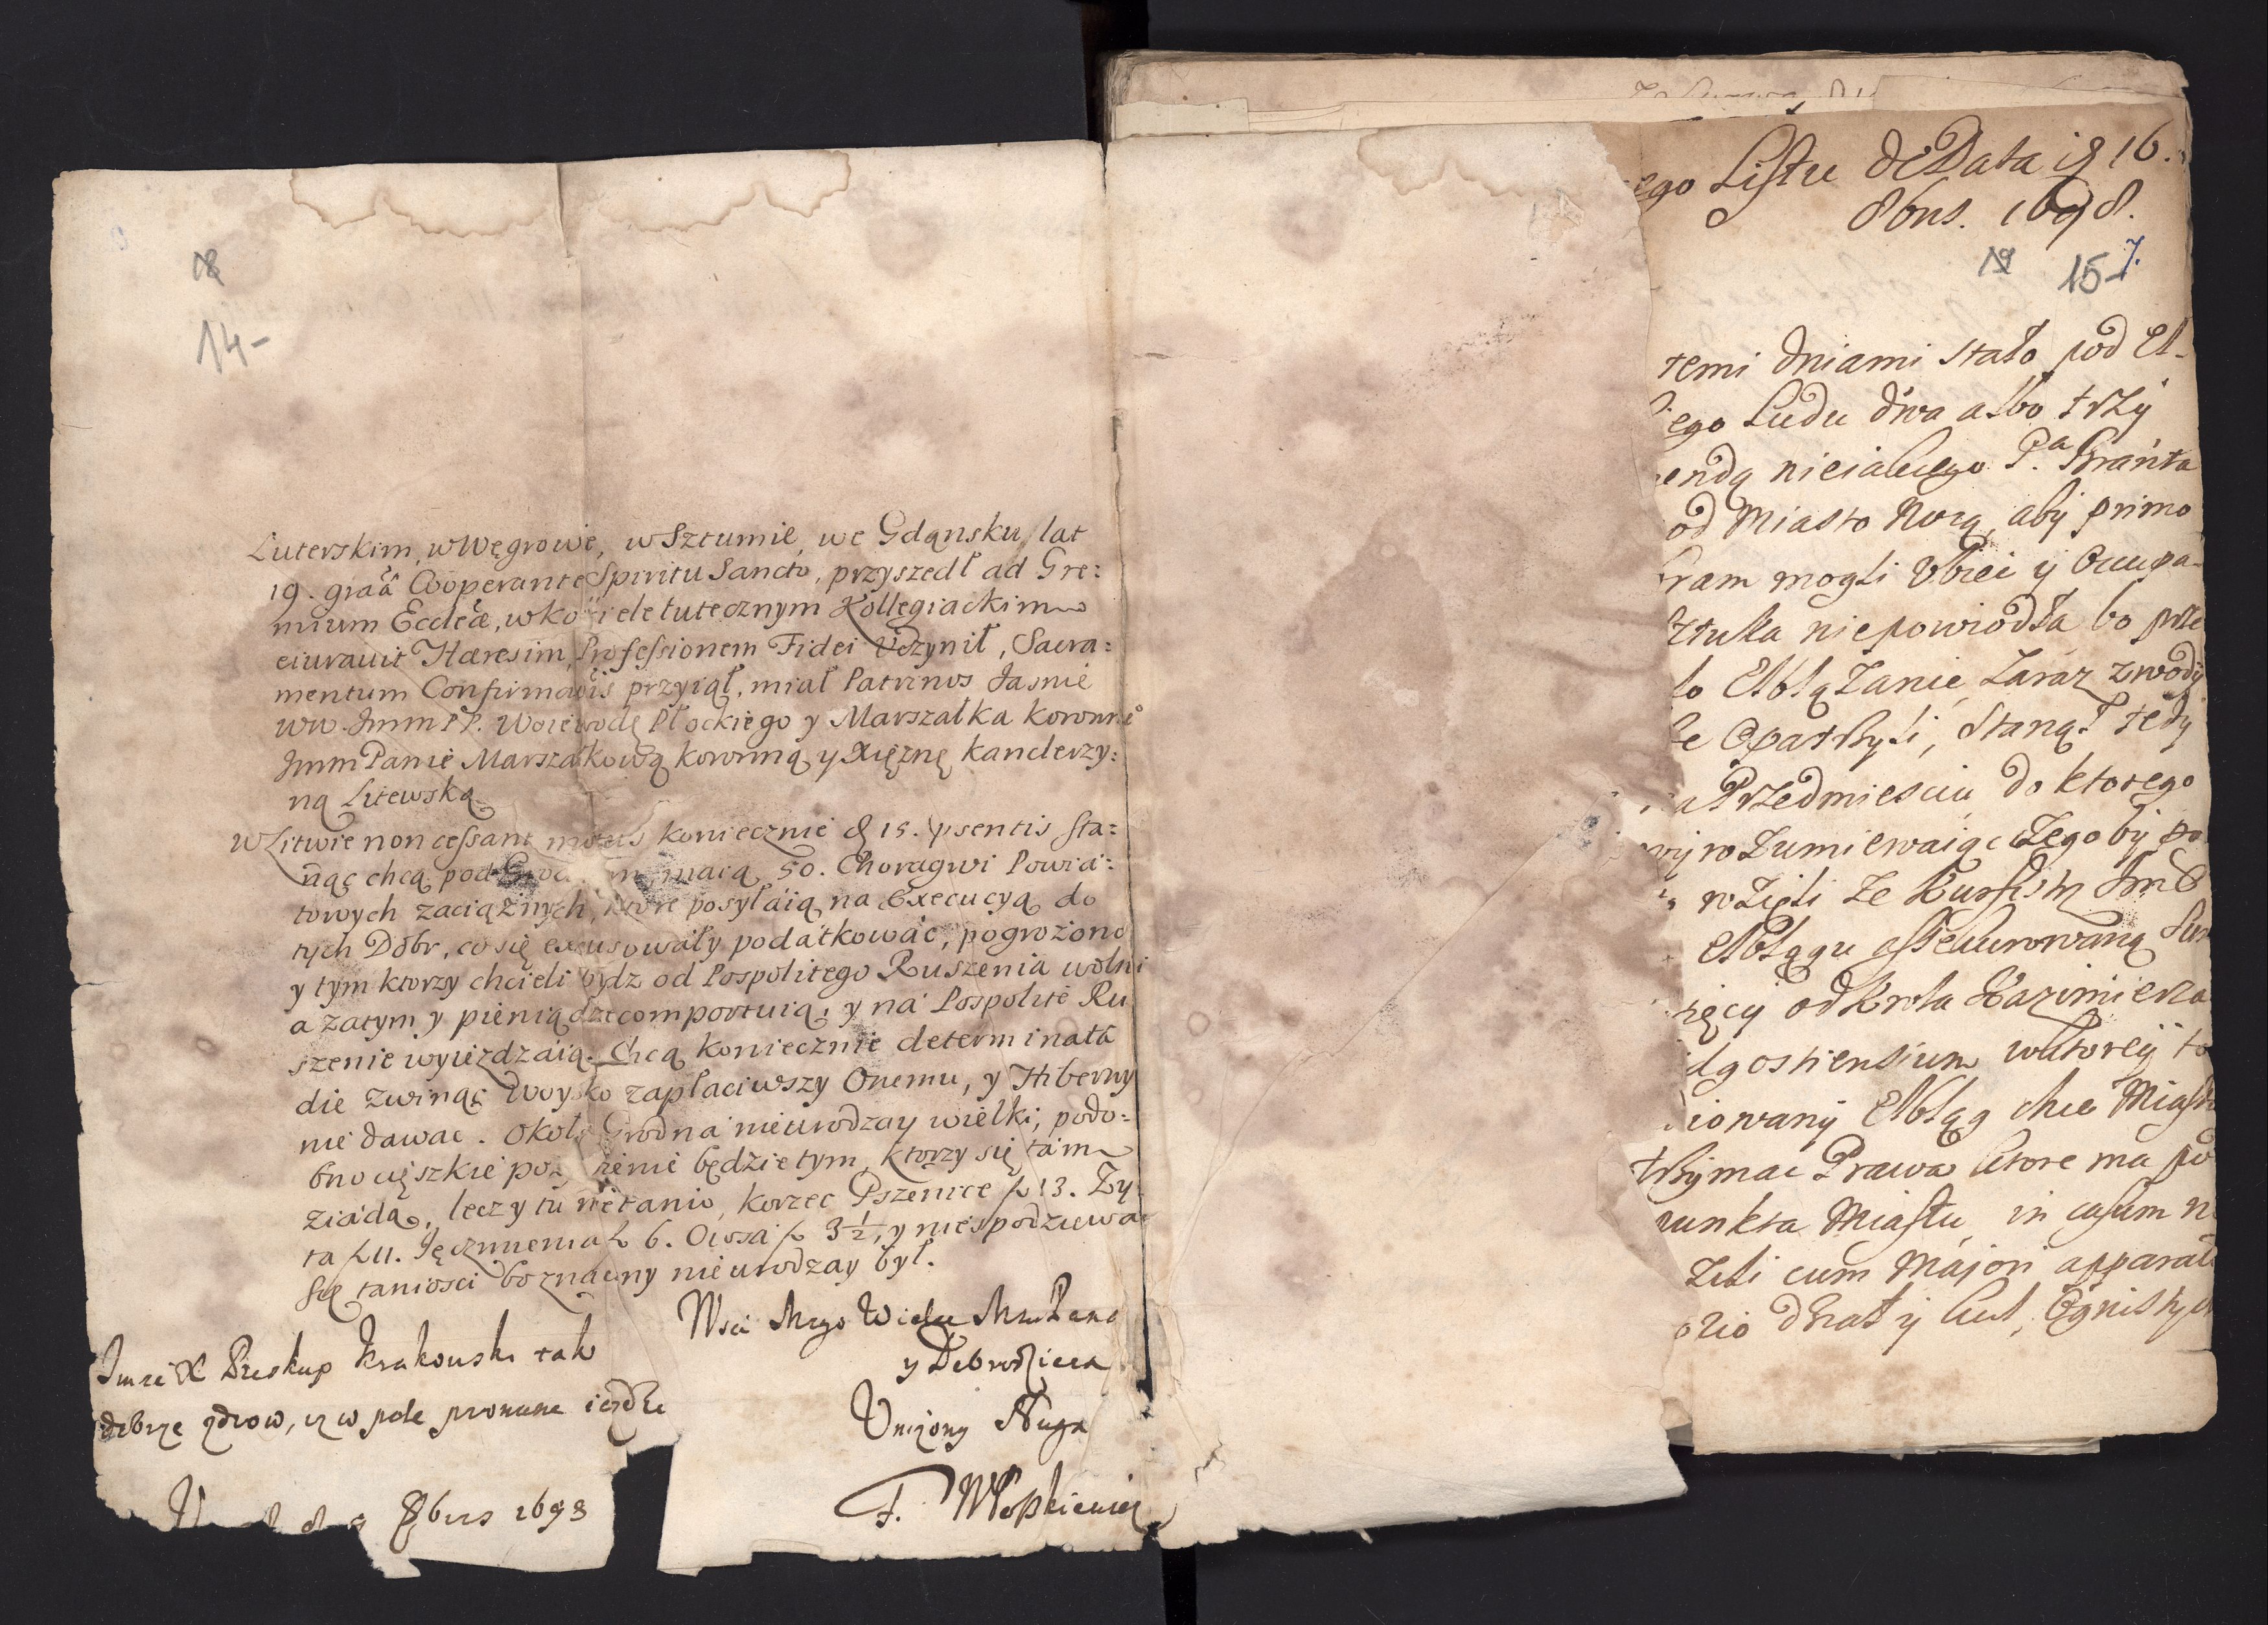 18
14-
Luterskim, w Węgrowie, w Sztumie, we Gdąnsku, lat
19. graã Cooperante Spiritu Sancto, przyszedł ad Gre:
mium Eccleæ, w ko iele tutecznym Kollegiackim
eiurauit Hæresim, Professionem Fidei Vczynił, Sacra:
mentum Confirmaõis przyiął, miał Patrinos Jasnie
WW. Jmm PP. Woiewodę Płockiego y Marszałka koronne
Jmm Panie Marszałkową koronną y Xiężnę kanclerzy:
ną Litewską
W Litwie non cessant motus koniecznie d 15. psentis sta:
nąc chcą pod maią 50. Choragwi Powia:
towych zaciążnych, ktore posyłaią na Execucyą do
tych Dobr, co się excusowały podatkowac, pogrożono
y tym ktorzy chcieli bydz od Pospolitego Ruszenia wolni
a zatym y pieniądze comportuią, y na Pospolite Ru
szenie wyiezdzaią. Chcą koniecznie determinata
die zwinąc Woysko zapłaciwszy Onemu, y Hiberny
nie dawac. Około Grodna nieurodzay wielki, podo:
bno cięszkie po enie będzie tym, ktorzy się tam
ziadą, lecz y tu nie tanio, korzec Pszenice f 13. Zy
ta f 11. Jęczmienia f 6. Owsa f 3½, y niespodziewac
się taniosci bo znaczny nieurodzay był.
Wsci Mego Wielce Mm Pana
y Dobrodzieia
Vniżony Sługa
F. Młopkiewicz
Jmsc X Biskup Krakowski tak
dobrze zdrow, iz w pole pronunc iezdzi
8bris 1698
ego Listu de Data is 16.
8bris. 1698.
19 15- 7.
temi dniami stało pod El-
ego Ludu dwa albo trzy
endą nieiakiego P.a Branta
od Miasto Nocą, aby primo
ram mogli Vbiec y Occupa-
ztuka niepowiodła bo prze
to Elblązanie zaraz zwody
le Opatrzyli, Stanął tedy
a Przedmiesciu do ktorego
wyrozumiewaiąc czego by po
wzięli ze Kurfirsty Jm
Elblągu assekurowaną Sum
ięcy od Krola Kazimierza
dgostiensium w ktorey to
iowany Elbląg chce Miasto
trzymac Prawa ktore ma po
unkta Miastu, in casum n
zeli cum Majori apparatu
ozio dział y kul, Ognistych